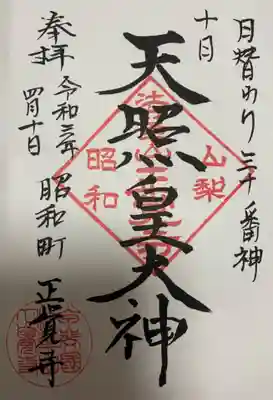 日替わり三十番神
十日
天照皇大神
奉拝
令和三年
四月十日
昭和町
正覚寺
山梨
昭和